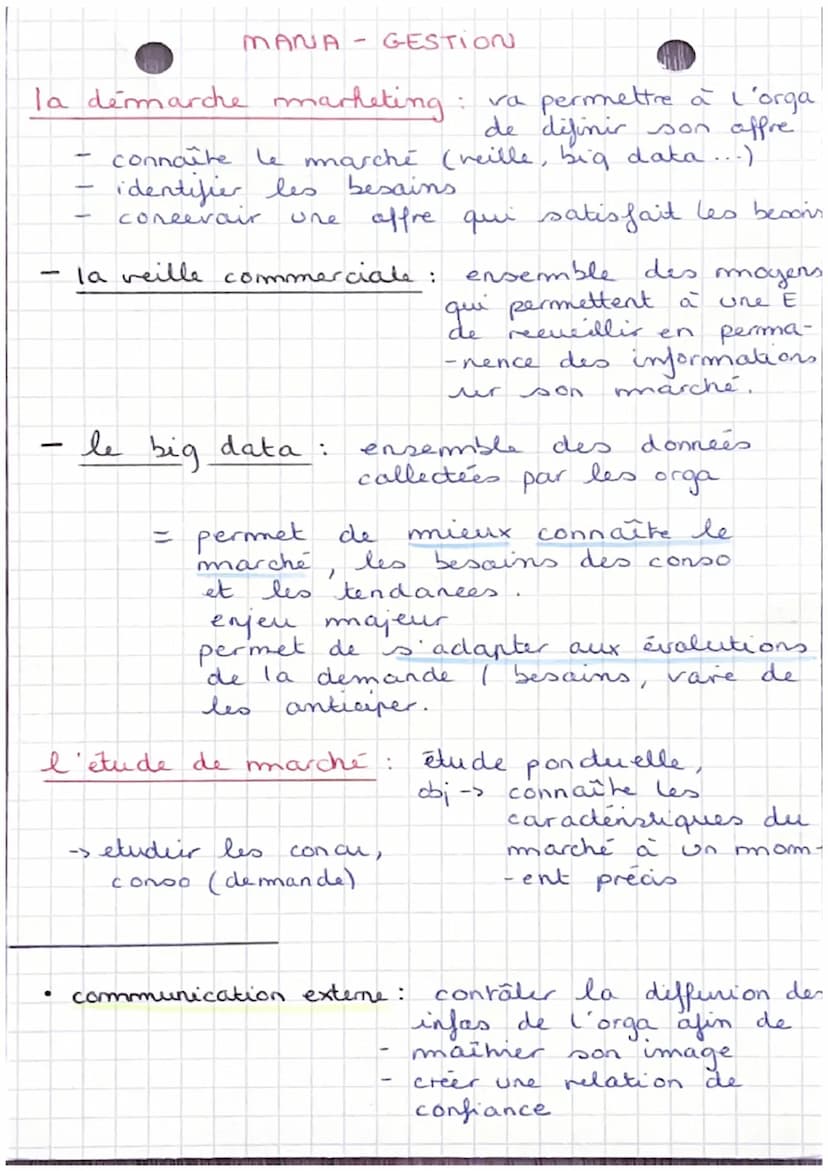 MANA - GESTION
la démarche marketing : va permettre à l'orga
de définir son offre
- connaître le marché (veille, big data ...)
- identifier les besoins
- concevoir une offre qui satisfait les besoins
- la veille commerciale : ensemble des moyens
qui permettent à une E
de recueillir en perma-
-nence des informations
sur son marché.
- le big data : ensemble des données
collectées par les orga
= permet de mieux connaître le
marché, les besoins des conso
et les tendances.
enjeu majeur
permet de s'adapter aux évolutions
de la demande / besoins, voire de
les anticiper.
l'étude de marché : étude ponctuelle,
obj -> connaître les
caractéristiques du
-> etudier les concu, marché à un mom-
conso (demande) -ent précis
• communication externe : contrôler la diffusion des
infos de l'orga afin de
- maîtriser son image
- créer une relation de
confiance